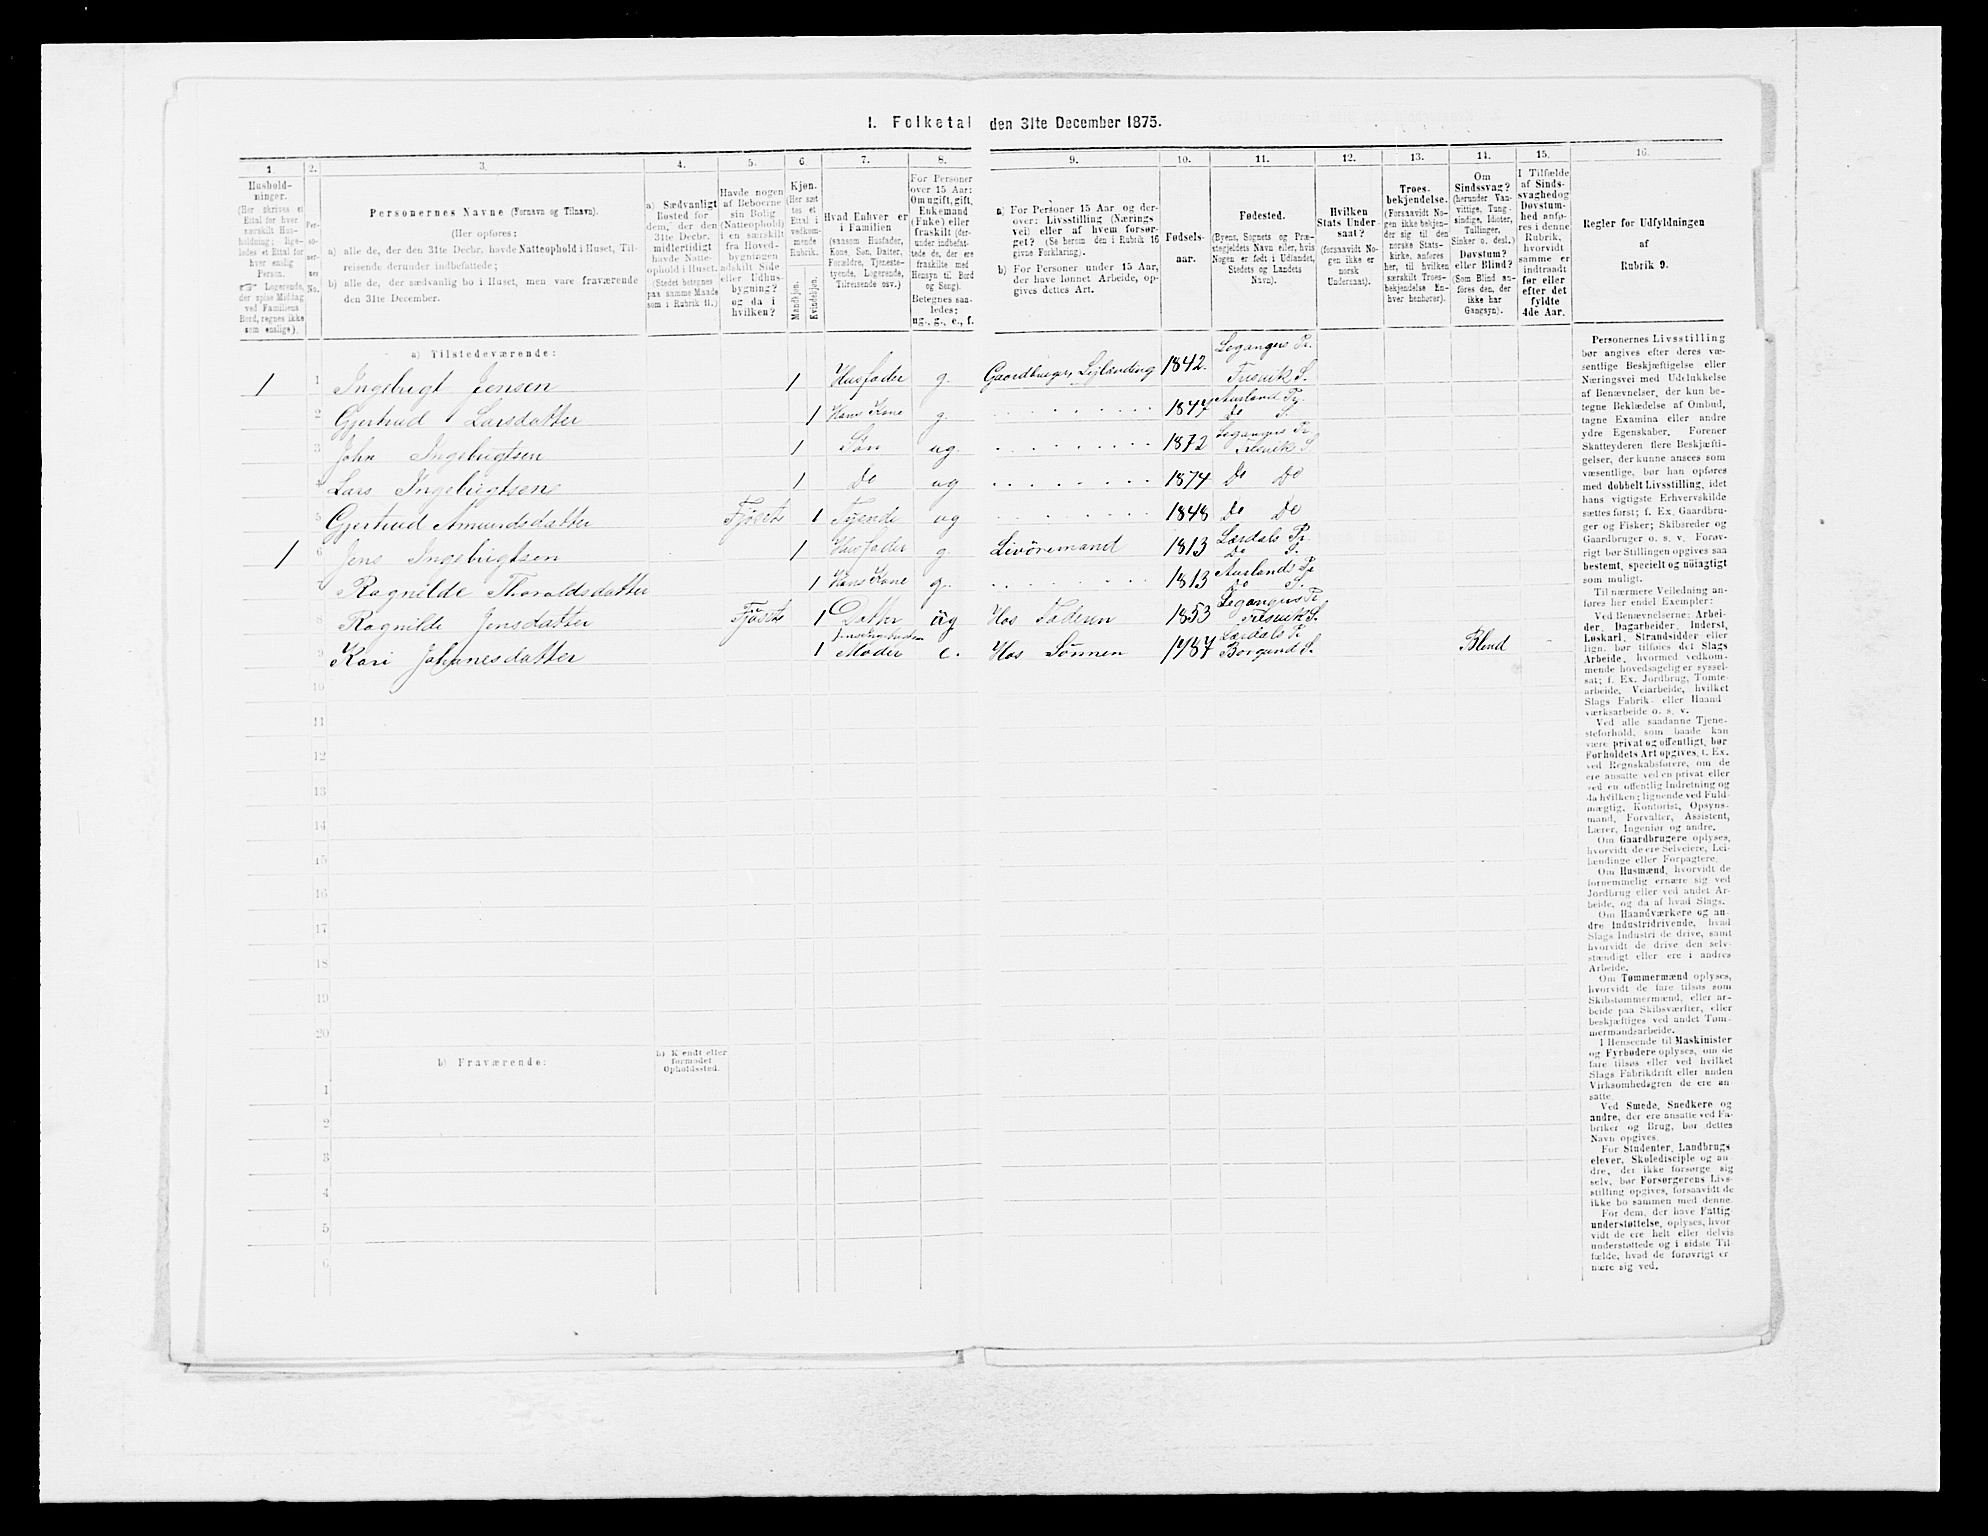 I. Folketal den 31te December 1875.
1. 2. 3. 4. 5. 6. 7. 8. 9. 10. 11. 12. 13. 14. 15. 16.
Husholdninger.
(Her skrives et
Ettal for hver
særskilt Husholdning; ligeledes
et Ettal for
hver enslig
Person.
☞ Logerende,
der spise Middag
ved Familiens
Bord, regnes ikke
som enslige).
Personernes No.
Personernes Navne (Fornavn og Tilnavn).
(Her opføres:
a) alle de, der den 31te Decbr. havde Natteophold i Huset, Tilreisende
derunder indbefattede;
b) alle de, der sædvanlig bo i Huset, men vare fraværende
den 31te December.
a) Sædvanligt
Bosted for
dem, der den
31te Decbr.
midlertidigt
havde Natteophold
i Huset.
(Stedet betegnes
paa samme Maade
som i Rubrik 11.)
Havde nogen
af Beboerne
sin Bolig
(Natteophold)
i en særskilt
fra Hovedbygningen
adskilt Side
eller Udhusbygning?
og da i
hvilken?
Kjøn.
(Her sættes
et
Ettal i
vedkommende
Rubrik.
Mandkjøn.
Kvindekjøn.
Hvad Enhver er
i Familien
(saasom Husfader,
Kone, Søn, Datter,
Forældre, Tjenestetyende,
Logerende,
Tilreisende osv.)
For Personer
over 15 Aar:
Om ugift, gift,
Enkemand
(Enke) eller
fraskilt (derunder
indbefattede
de, der ere
fraskilte med
Hensyn til Bord
og Seng).
Betegnes saaledes:
ug., g., e., f.
a) For Personer 15 Aar og derover:
Livsstilling (Næringsvei)
eller af hvem forsørget?
(Se herom den i Rubrik 16
givne Forklaring).
b) For Personer under 15 Aar,
der have lønnet Arbeide, opgives
dettes Art.
Fødselsaar.
Fødested.
(Byens, Sognets og Præstegjeldets
Navn eller, hvis
Nogen er født i Udlandet,
Stedets og Landets
Navn).
Hvilken
Stats Undersaat?
(forsaavidt Nogen
ikke er
norsk
Undersaat).
Troesbekjendelse.
(Forsaavidt Nogen
ikke bekjender
sig til den
norske Statskirke,
anføres
her, til hvilken
særskilt Troesbekjendelse
Enhver
henhører).
Om
Sindssvag?
(herunder Vanvittige,
Tungsindige,
Idioter,
Tullinger,
Sinker o. desl.)
Døvstum?
eller Blind?
(Som Blind anføres
den, der
ikke har
Gangsyn).
I Tilfælde
af Sindssvaghed
og
Døvstumhed
anføres
i denne
Rubrik,
hvorvidt
samme er
indtraadt
før eller
efter det
fyldte
4de Aar.
Regler for Udfyldningen
af
Rubrik 9.
a) Tilstedeværende:
1 1 Ingebrigt Jensen 1 Husfader g. Gaardbruger, Leilænding 1842. Leganger Pr. Fresvik S.
2 Gjertrud Larsdatter 1 Hans Kone g. 1844 Aurland Pr. Do S.
3 John Ingebrigtsen 1 Søn ug. 1872 Leganger Pr. Fresvik S
4 Lars Ingebrigtsen 1 Do ug 1874 Do Do
5 Gjertrud Amundsdatter 1 Tyende ug 1848 Do Do
1 6 Jens Ingebrigtsen 1 Husfader g. Livøremand 1813 Lærdals Pr. Do S.
7 Ragnilde Thoraldsdatter 1 Hans Kone g. 1813 Aurlands Pr Do S.
8 Ragnilde Jensdatter 1 Datter ug Hos Faderen 1853 Leganger Pr Fresvik S.
9 Kari Johannesdatter 1 Moder e. Hos Sønnen 1787 Lærdals Pr Borgund S. Blind
10
11
12
13
14
15
16
17
18
19
20
b) Fraværende:
b) Kjendt eller
formodet
Opholdssted.
1
2
3
4
5
6
Personernes Livsstilling
bør angives efter deres væsentlige
Beskjæftigelse eller
Næringsvei med Udelukkelse
af Benævnelser, der kun betegne
Beklædelse af Ombud,
tagne Examina eller andre
ydre Egenskaber. Forener
Skatteyderen flere Beskjæftigelser,
der kunne ansees som
væsentlige, bør han opføres
med dobbelt Livsstilling, idet
hans vigtigste Erhvervskilde
sættes først; f. Ex. Gaardbruger
og Fisker; Skibsreder og
Gaardbruger o. s. v. Forøvrigt
bør Stillingen opgives saa
bestemt, specielt og nøiagtigt
som muligt.
Til nærmere Veiledning anføres
her endel Exempler:
Ved Benævnelserne: Arbeider,
Dagarbeider, Inderst,
Løskarl, Strandsidder eller
lign. bør tilføies det Slags
Arbeide, hvormed vedkommende
hovedsagelig er sysselsat;
f. Ex. Jordbrug, Tomtearbeide,
Veiarbeide, hvilket
Slags Fabrik- eller Haandværksarbeide
o. s. v.
Ved alle saadanne Tjenesteforhold,
som baade kan
være privat og offentligt, bør
Forholdets Art opgives, t. Ex.
ved Regnskabsførere, om de
ere ansatte ved en privat eller
ved en offentlig Indretning og
da hvilken; lignende ved Fuldmægtig,
Kontorist, Opsynsmand,
Forvalter, Assistent,
Lærer, Ingeniør og andre.
Om Gaardbrugere oplyses,
hvorvidt de ere Selveiere, Leilændinge
eller Forpagtere.
Om Husmænd, hvorvidt de
fornemmelig ernære sig ved
Jordbrug eller ved andet Arbeide,
og da af hvad Slags.
Om Haandværkere og andre
Industridrivende, hvad
Slags Industri de drive, samt
hvorvidt de drive den selvstændigt
eller ere i andres
Arbeide.
Om Tømmermænd oplyses,
hvorvidt de fare tilsøs som
Skibstømmermænd, eller arbeide
paa Skibsværfter, eller
beskjæftiges ved andet Tømmermandsarbeide.
I Henseende til Maskinister
og Fyrbødere oplyses, om de
fare tilsøs eller ved hvilket
Slags Fabrikdrift eller anden
Virksomhedsgren de ere ansatte.
Ved Smede, Snedkere og
andre, der ere ansatte ved Fabriker
og Brug, bør dettes
Navn opgives.
For Studenter, Landbrugselever,
Skoledisciple og andre,
der ikke forsørge sig
selv, bør Forsørgerens Livsstilling
opgives, forsaavidt de
ikke bo sammen med denne.
For dem, der have Fattigunderstøttelse,
oplyses, hvorvidt
de ere helt eller delvis
understøttede og i sidste Tilfælde,
hvad de forøvrigt ernære
sig ved.